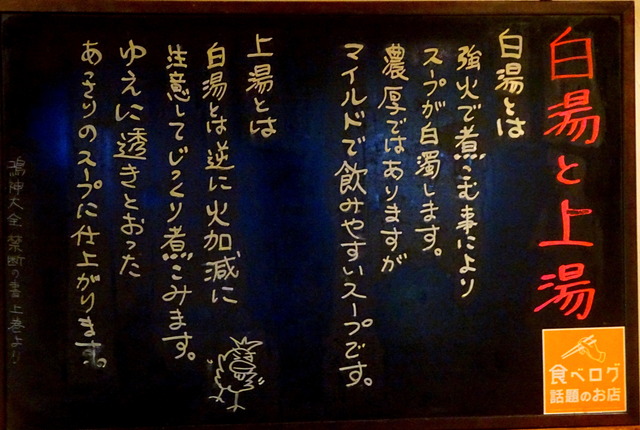 白湯と上湯
白湯とは
強火で煮こむ事により
スープが白濁します。
濃厚ではありますが
マイルドで飲みやすいスープです。
上湯とは
白湯とは逆に火加減に
注意してじっくり煮こみます。
ゆえに透きとおった
あっさりのスープに仕上がります。
鶏神大全 禁断の書 上巻より
食べログ
話題のお店